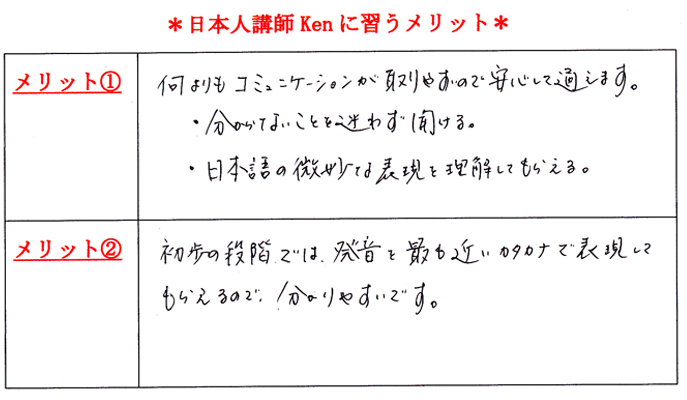 ＊日本人講師 Ken に習うメリット＊
メリット①
何よりもコミュニケーションが取りやすいので安心して通えます。
・分からないことを迷わず聞ける。
・日本語の微妙な表現を理解してもらえる。
メリット②
初歩の段階では、発音を最も近いカタカナで表現して
もらえるので、分かりやすいです。